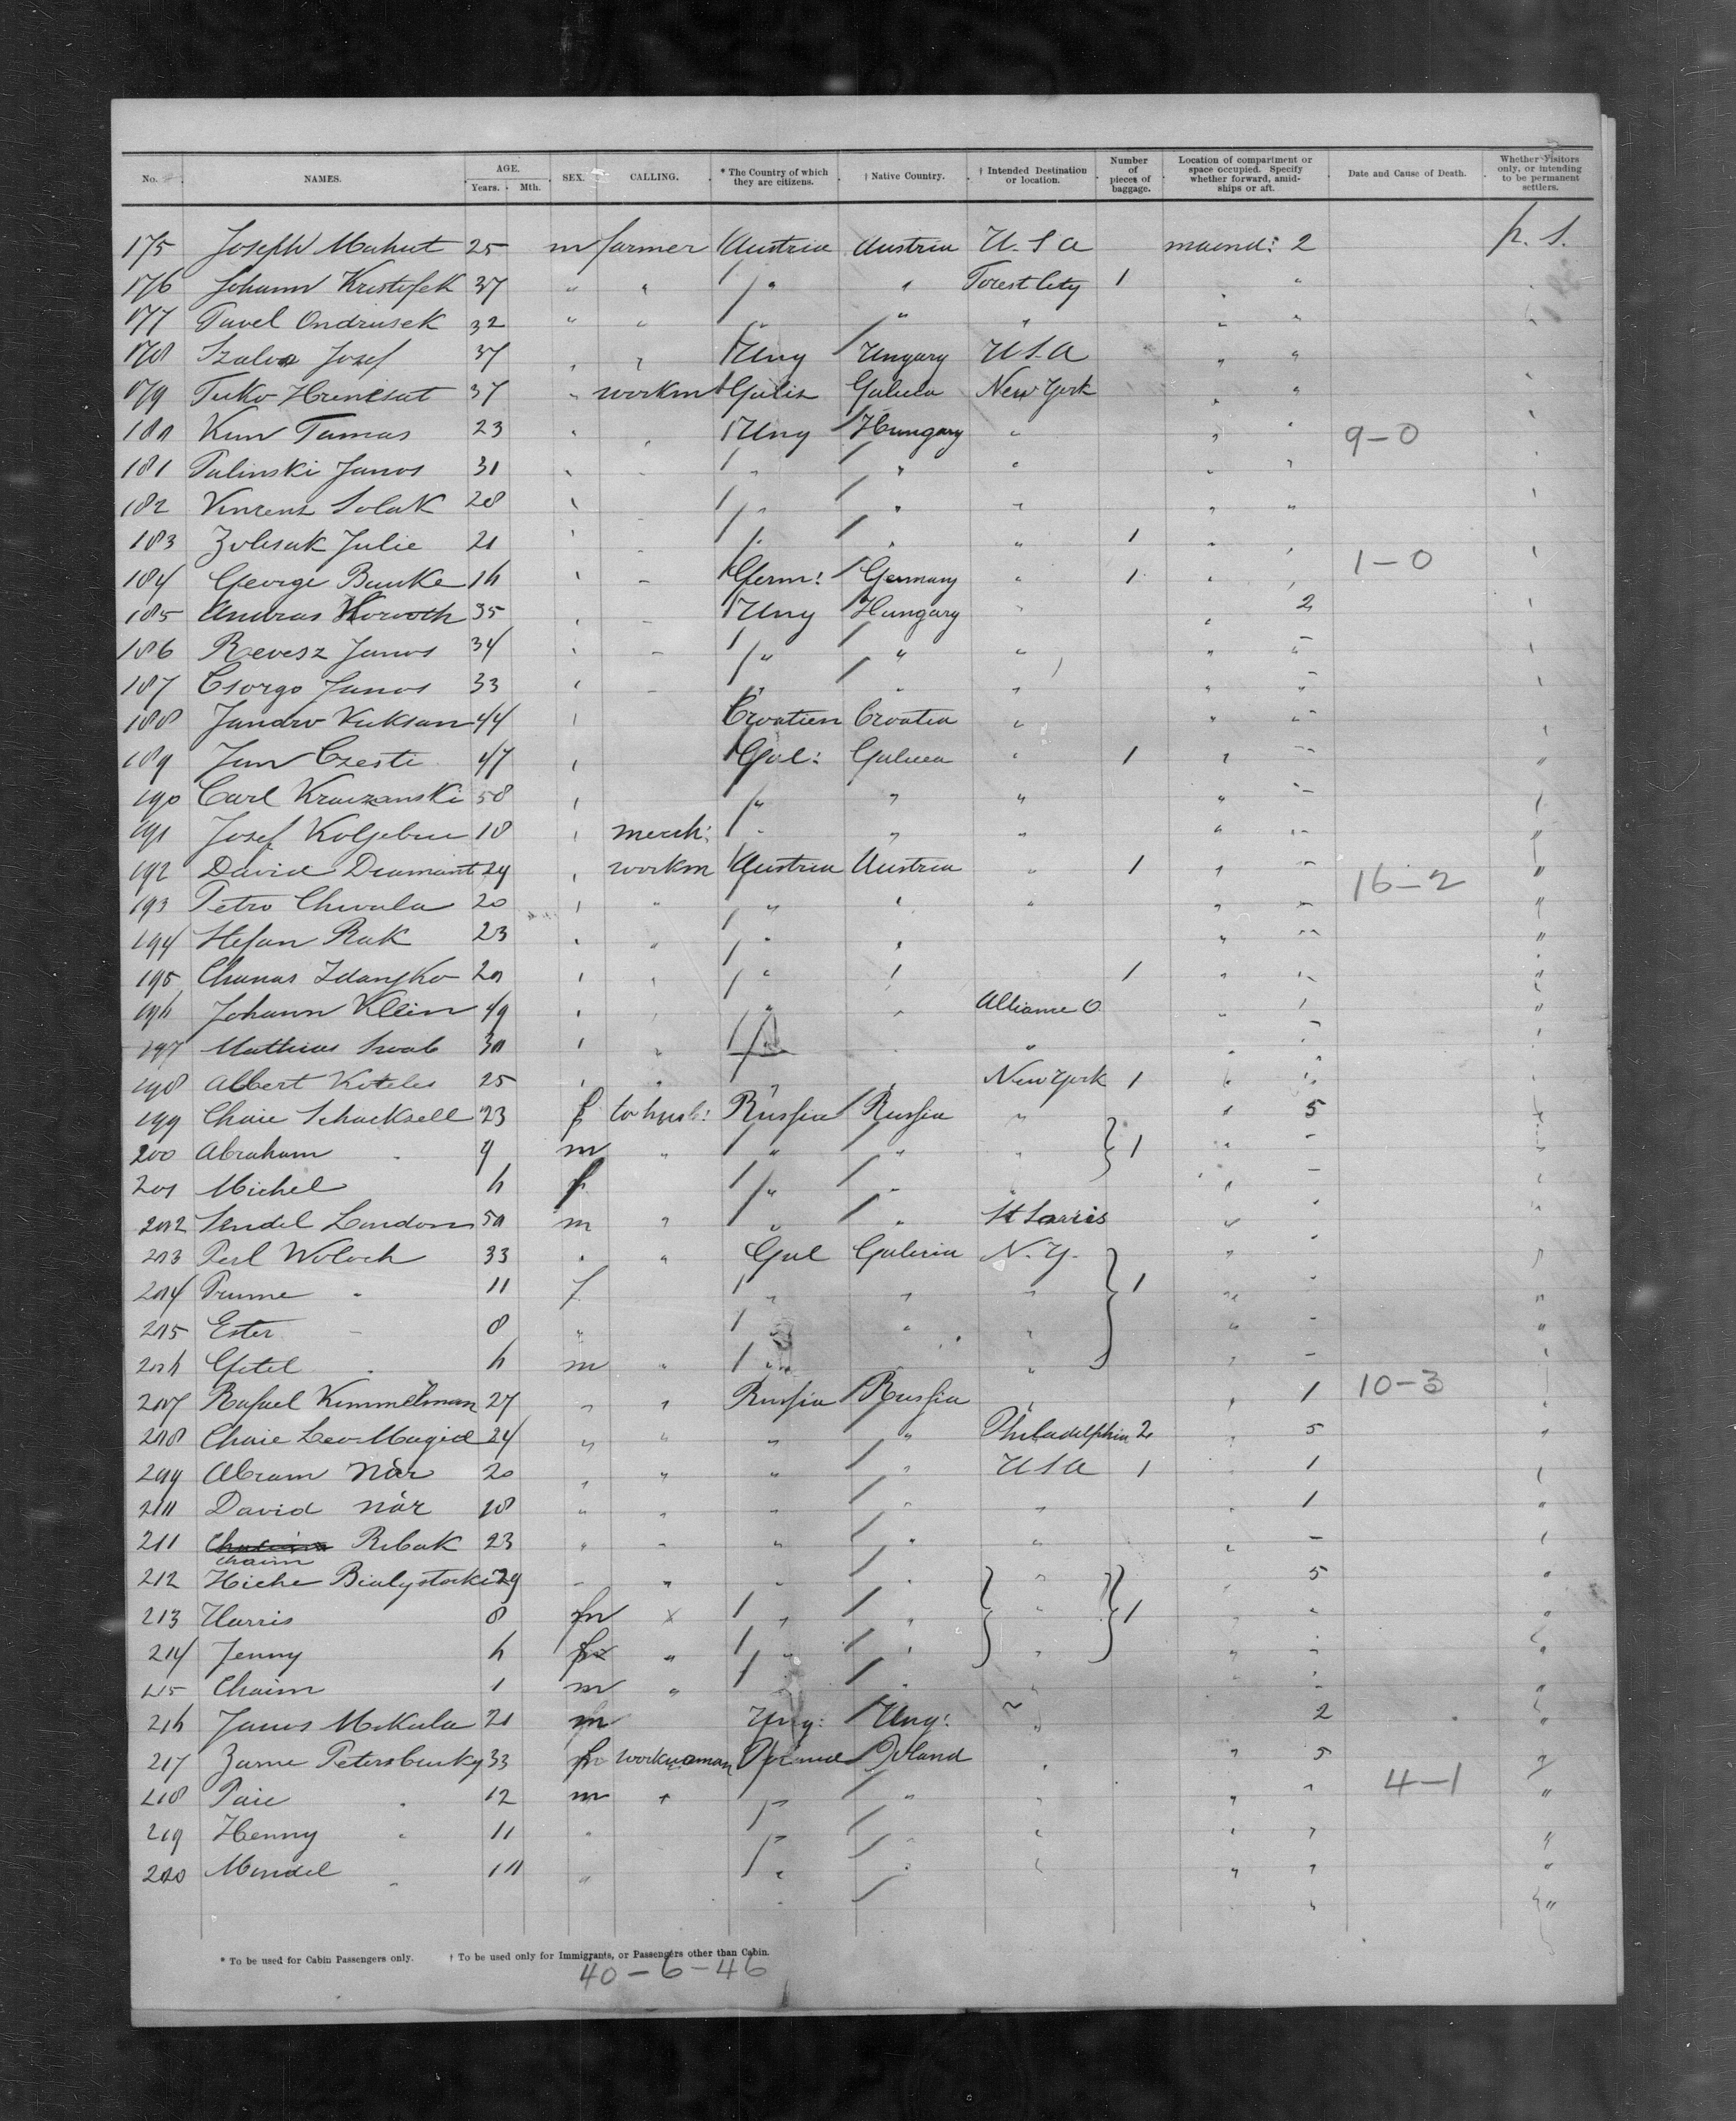 No. NAMES. AGE. Years. Mth. SEX. CALLING. * The Country of which they are citizens. † Native Country. † Intended Destination or location. Number of pieces of baggage. Location of compartment or space occupied. Specify whether forward, amidships or aft. Date and Cause of Death. Whether Visitors only, or intending to be permanent settlers.
175 Joseph Mahut 25 m farmer Austria Austria U. S A 2 p. S.
176 Johann Kristofek 37 " " " " Forest City 1 " "
177 Pavel Ondrusek 32 " " " " " " "
178 Josef 37 " " Ung Ungary U.S.A " "
179 37 " workm Galiz Galicia New York " "
180 Kun Tamas 23 " " Ung Hungary " " " 9-0
181 Palinski Janos 31 " " " " " "
182 Vinzenz Solak 28 " " " " " "
183 Julie 21 " " " " " 1 " "
184 George Banke 16 " " Germ: Germany " 1 " " 1-0
185 Andras Horvoth 35 " " Ung Hungary " " 2
186 Revesz Janos 34 " " " " " " "
187 Csorgo Janos 33 " " " " " " "
188 Jandro Vuksan 44 " Croatien Croatia " " "
189 Jan Czesti 47 " Gal: Galicia " 1 " "
190 Carl 58 " " " " " "
191 Josef 18 " merch: " " " " "
192 David Diamant 29 " workm Austria Austria " 1 " " "
193 Petro Chwala 20 " " " " " " " " 16-2
194 Stefan Rak 23 " " " " " " "
195 20 " " " " 1 " " "
196 Johann Klein 49 " " " " Alliance O. " " "
197 Mathias Swab 30 " " " " "
198 Albert Koteles 25 " " " New York 1 " "
199 Chaie Schacksell 23 f to husb: Russia Russia " " 5
200 Abraham " 9 m " " " " 1 " "
201 Michel 6 f " " " "
202 Sendel London 50 m " " " " "
203 Perl Woloch 33 " " Gal Galicia N. Y. " "
204 " 11 f " " " 1 " " "
205 Ester " 8 " " " " " " "
206 " 6 m " " " " "
207 Rafael Kimmelman 27 " " Russia Russia " " 1 10-3
208 Chaie Lea Magid 24 " " " " Philadelphia 2 " 5 "
209 Abram När 20 " " " " U S A 1 " 1
210 David när 18 " " " " " " 1 "
211 Chaim Ribak 23 " " " " " " "
212 Hiche Bialystocki 29 " " " " " " 5 "
213 Harris 8 m " " " " 1 " " "
214 Jenny 6 f " " " " " " "
215 Chaim 1 m " " " " "
216 Janos Mikula 21 m Ung: Ung: " 2 "
217 Petersburky 33 f workwoman Poland Poland " " 5 "
218 " 12 m " " " " " " " 4-1
219 Henny " 11 " " " " " " "
220 Mendel " 10 " " " " " " "
* To be used for Cabin Passengers only. † To be used only for Immigrants, or Passengers other than Cabin.
40-6-46